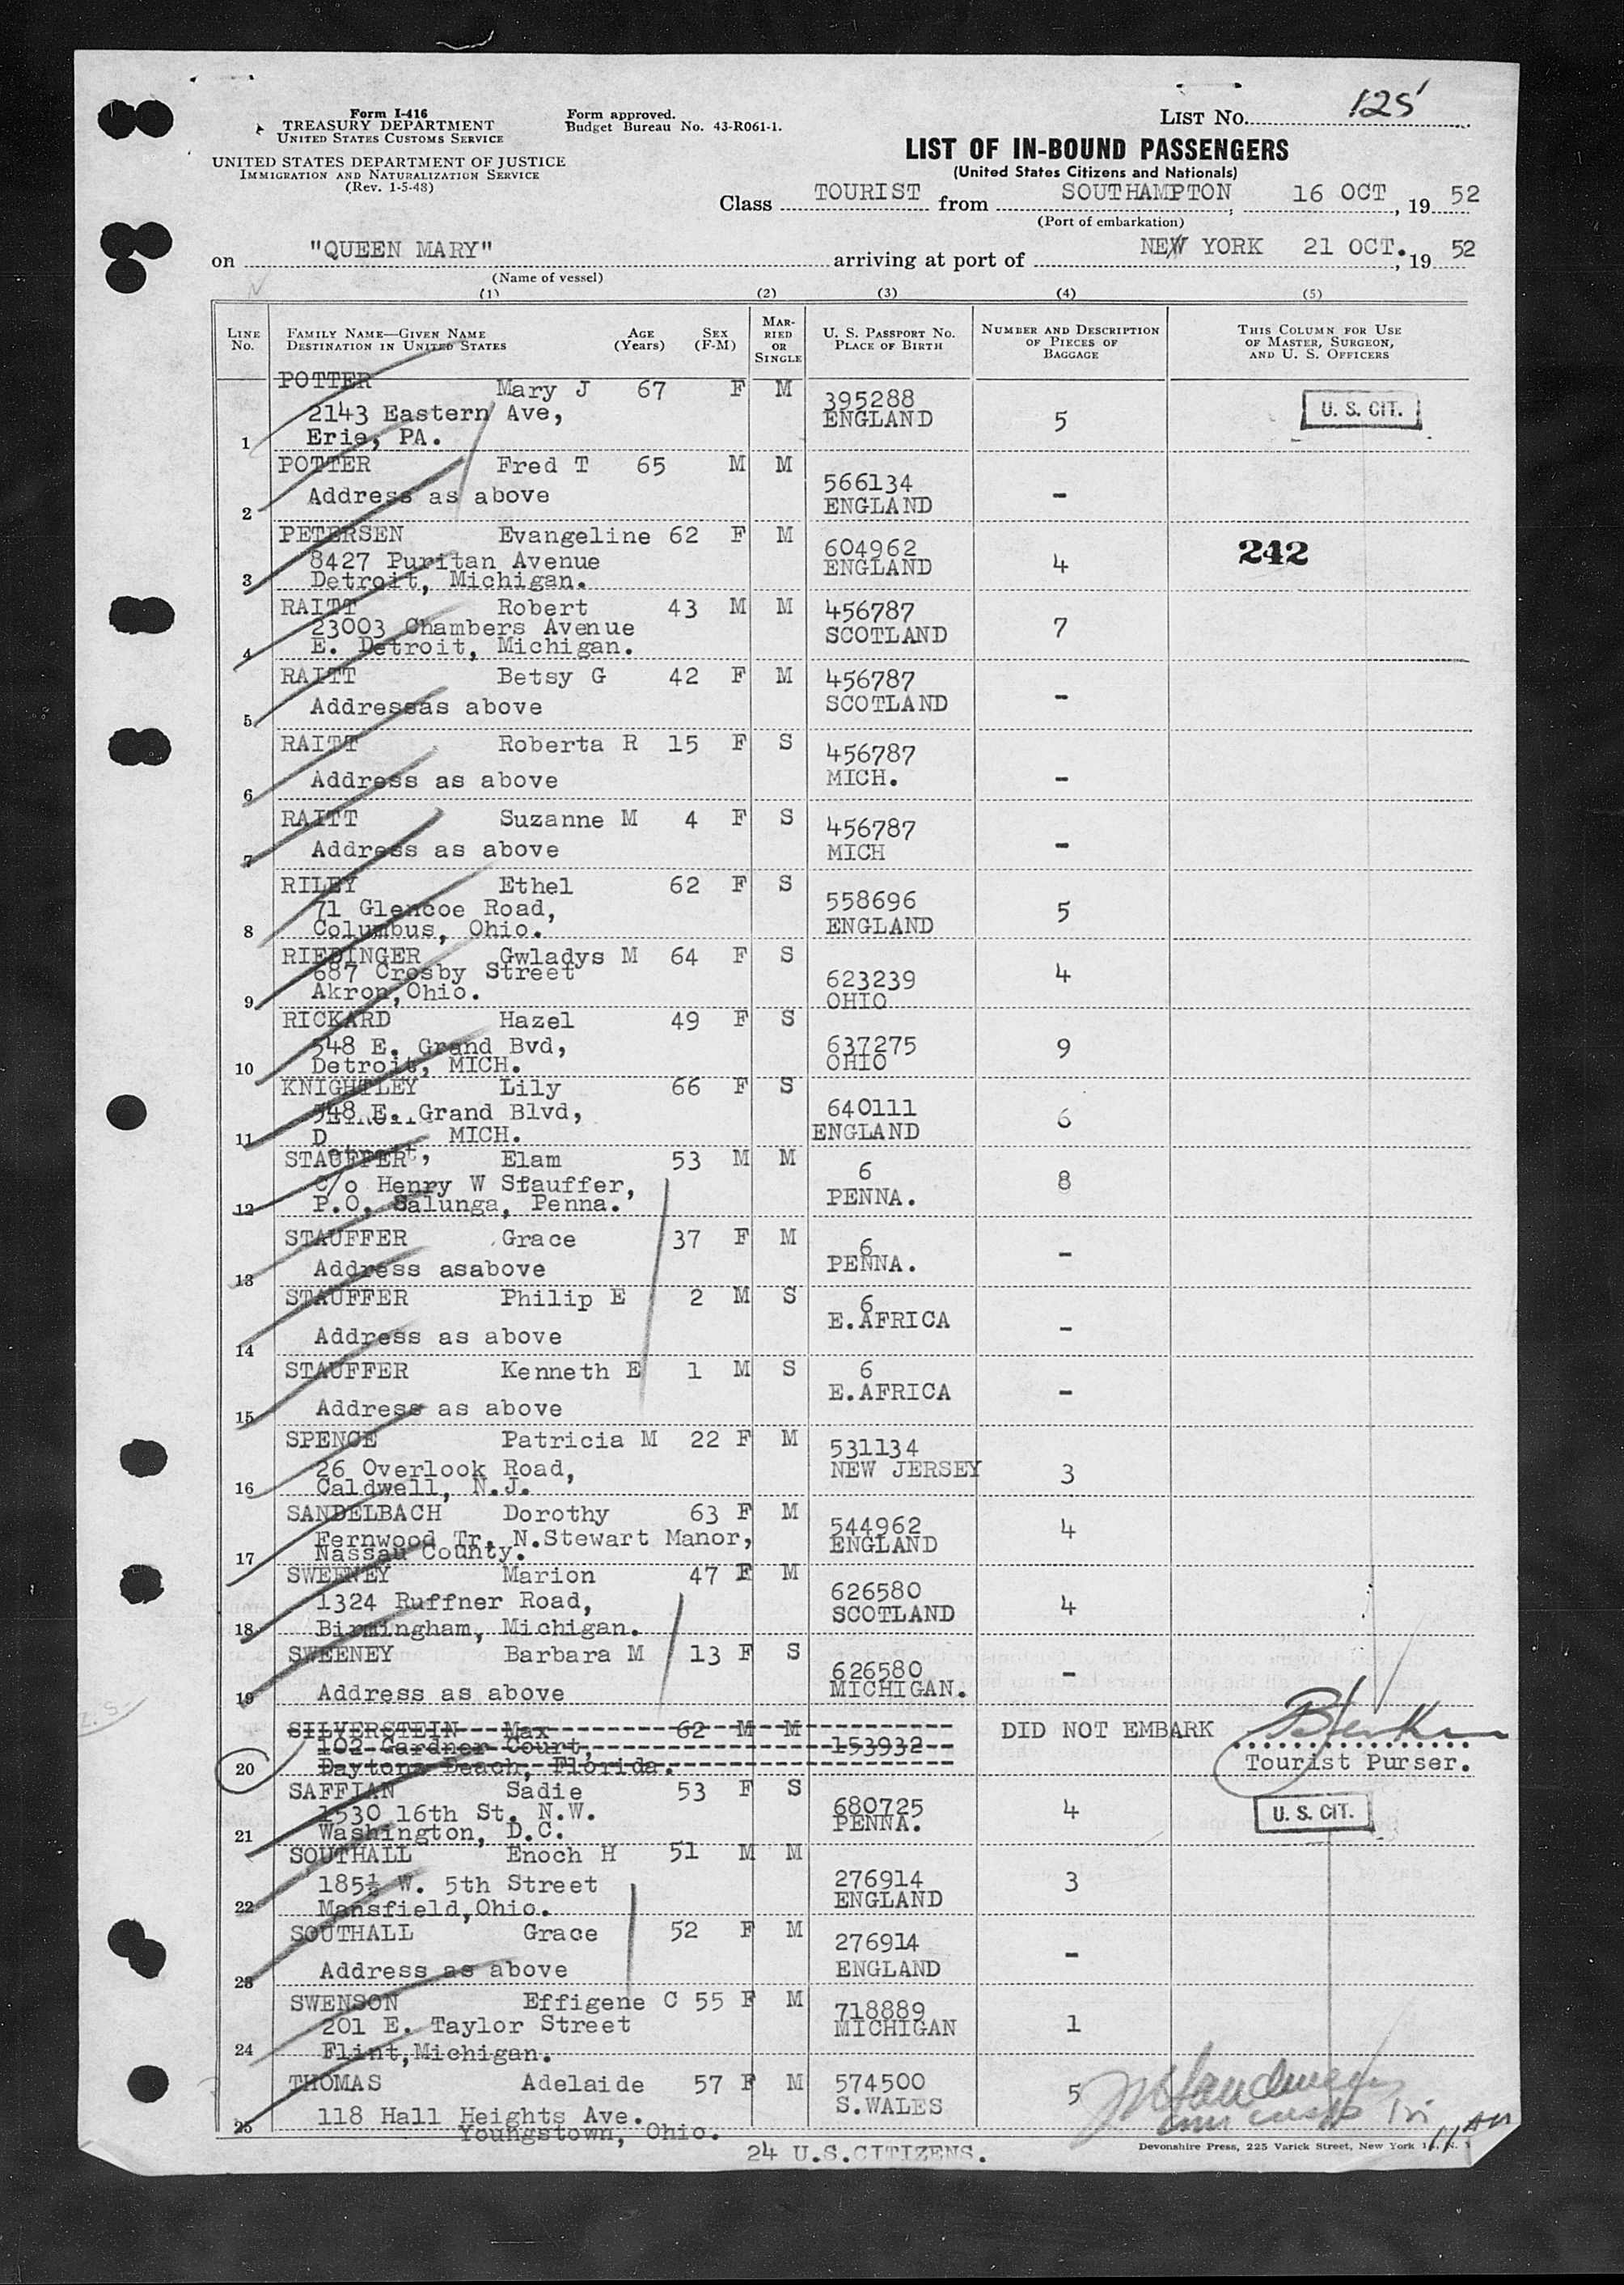 Form I-416
TREASURY DEPARTMENT
UNITED STATES CUSTOMS SERVICE
UNITED STATES DEPARTMENT OF JUSTICE
IMMIGRATION AND NATURALIZATION SERVICE
(Rev. 1-5-48)
Form approved.
Budget Bureau No. 43-R061-1.
LIST No. 125
LIST OF IN-BOUND PASSENGERS
(United States Citizens and Nationals)
Class TOURIST from SOUTHAMPTON, 16 OCT, 1952
(Port of embarkation)
on "QUEEN MARY" arriving at port of NEW YORK 21 OCT., 1952
(Name of vessel)
(1) (2) (3) (4) (5)
LINE No. FAMILY NAME—GIVEN NAME DESTINATION IN UNITED STATES AGE (Years) SEX (F-M) MARRIED OR SINGLE U. S. PASSPORT No. PLACE OF BIRTH NUMBER AND DESCRIPTION OF PIECES OF BAGGAGE THIS COLUMN FOR USE OF MASTER, SURGEON, AND U. S. OFFICERS
POTTER Mary J 67 F M 395288 U. S. CIT.
2143 Eastern Ave, ENGLAND 5
1 Erie, PA.
POTTER Fred T 65 M M 566134
2 Address as above ENGLAND -
PETERSEN Evangeline 62 F M 604962 242
8427 Puritan Avenue ENGLAND 4
3 Detroit, Michigan.
RAITT Robert 43 M M 456787
23003 Chambers Avenue SCOTLAND 7
4 E. Detroit, Michigan.
RAITT Betsy G 42 F M 456787
5 Addressas above SCOTLAND -
RAITT Roberta R 15 F S 456787
6 Address as above MICH. -
RAITT Suzanne M 4 F S 456787
7 Address as above MICH -
RILEY Ethel 62 F S 558696
71 Glencoe Road, ENGLAND 5
8 Columbus, Ohio.
RIEDINGER Gwladys M 64 F S 623239
687 Crosby Street OHIO 4
9 Akron,Ohio.
RICKARD Hazel 49 F S 637275
548 E. Grand Bvd, OHIO 9
10 Detroit, MICH.
KNIGHTLEY Lily 66 F S 640111
548 E. Grand Blvd, ENGLAND 6
11 Detroit, MICH.
STAUFFER Elam 53 M M 6
C/o Henry W Stauffer, PENNA. 8
12 P.O. Salunga, Penna.
STAUFFER Grace 37 F M 6
13 Address asabove PENNA. -
STAUFFER Philip E 2 M S 6
14 Address as above E.AFRICA -
STAUFFER Kenneth E 1 M S 6
15 Address as above E.AFRICA -
SPENCE Patricia M 22 F M 531134
26 Overlook Road, NEW JERSEY 3
16 Caldwell, N.J.
SANDELBACH Dorothy 63 F M 544962
Fernwood Tr. N.Stewart Manor, ENGLAND 4
17 Nassau County.
SWEENEY Marion 47 F M 626580
1324 Ruffner Road, SCOTLAND 4
18 Birmingham, Michigan.
SWEENEY Barbara M 13 F S 626580
19 Address as above MICHIGAN. -
SILVERSTEIN Max 62 M M 153932 DID NOT EMBARK
102 Gardner Court,
20 Daytona Beach, Florida. Tourist Purser.
SAFFIAN Sadie 53 F S 680725 U. S. CIT.
1530 16th St. N.W. PENNA. 4
21 Washington, D.C.
SOUTHALL Enoch H 51 M M 276914
185½ W. 5th Street ENGLAND 3
22 Mansfield,Ohio.
SOUTHALL Grace 52 F M 276914
23 Address as above ENGLAND -
SWENSON Effigene C 55 F M 718889
201 E. Taylor Street MICHIGAN 1
24 Flint,Michigan.
THOMAS Adelaide 57 F M 574500
118 Hall Heights Ave. S.WALES 5
25 Youngstown, Ohio.
24 U.S.CITIZENS.
Devonshire Press, 225 Varick Street, New York